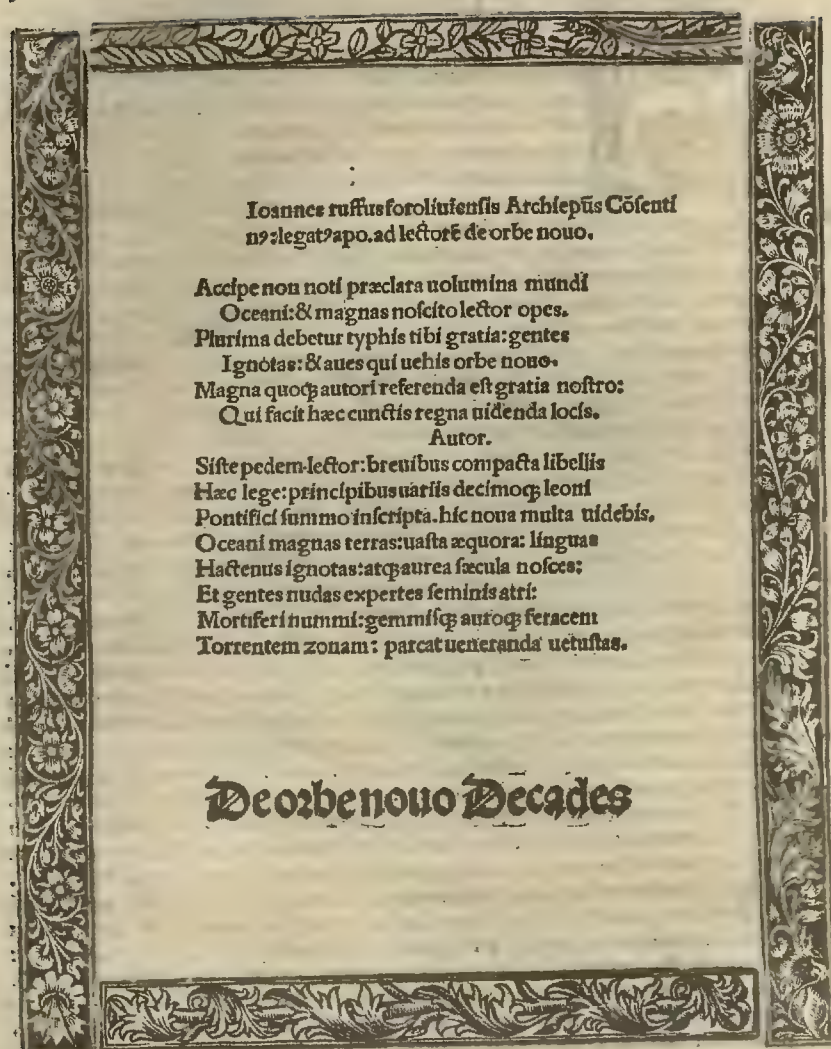 Ioannes ruffus foroliuiensis Archiepūs Cōsenti
nꝰ:legatꝰ apo.ad lectorē de orbe nouo.
Accipe non noti præclara uolumina mundi
Oceani:& magnas noscito lector opes.
Plurima debetur typhis tibi gratia:gentes
Ignotas:& aues qui uehis orbe nouo.
Magna quoqꝫ autori referenda est gratia nostro:
Qui facit hæc cunctis regna uidenda locis.
Autor.
Siste pedem lector:breuibus compacta libellis
Hæc lege:principibus uariis decimoqꝫ leoni
Pontifici summo inscripta.hic noua multa uidebis.
Oceani magnas terras:uasta æquora: linguas
Hactenus ignotas:atqꝫ aurea sæcula nosces:
Et gentes nudas expertes seminis atri:
Mortiferi nummi:gemmisqꝫ auroqꝫ feracem
Torrentem zonam: parcat ueneranda uetustas.
De orbe nouo Decades